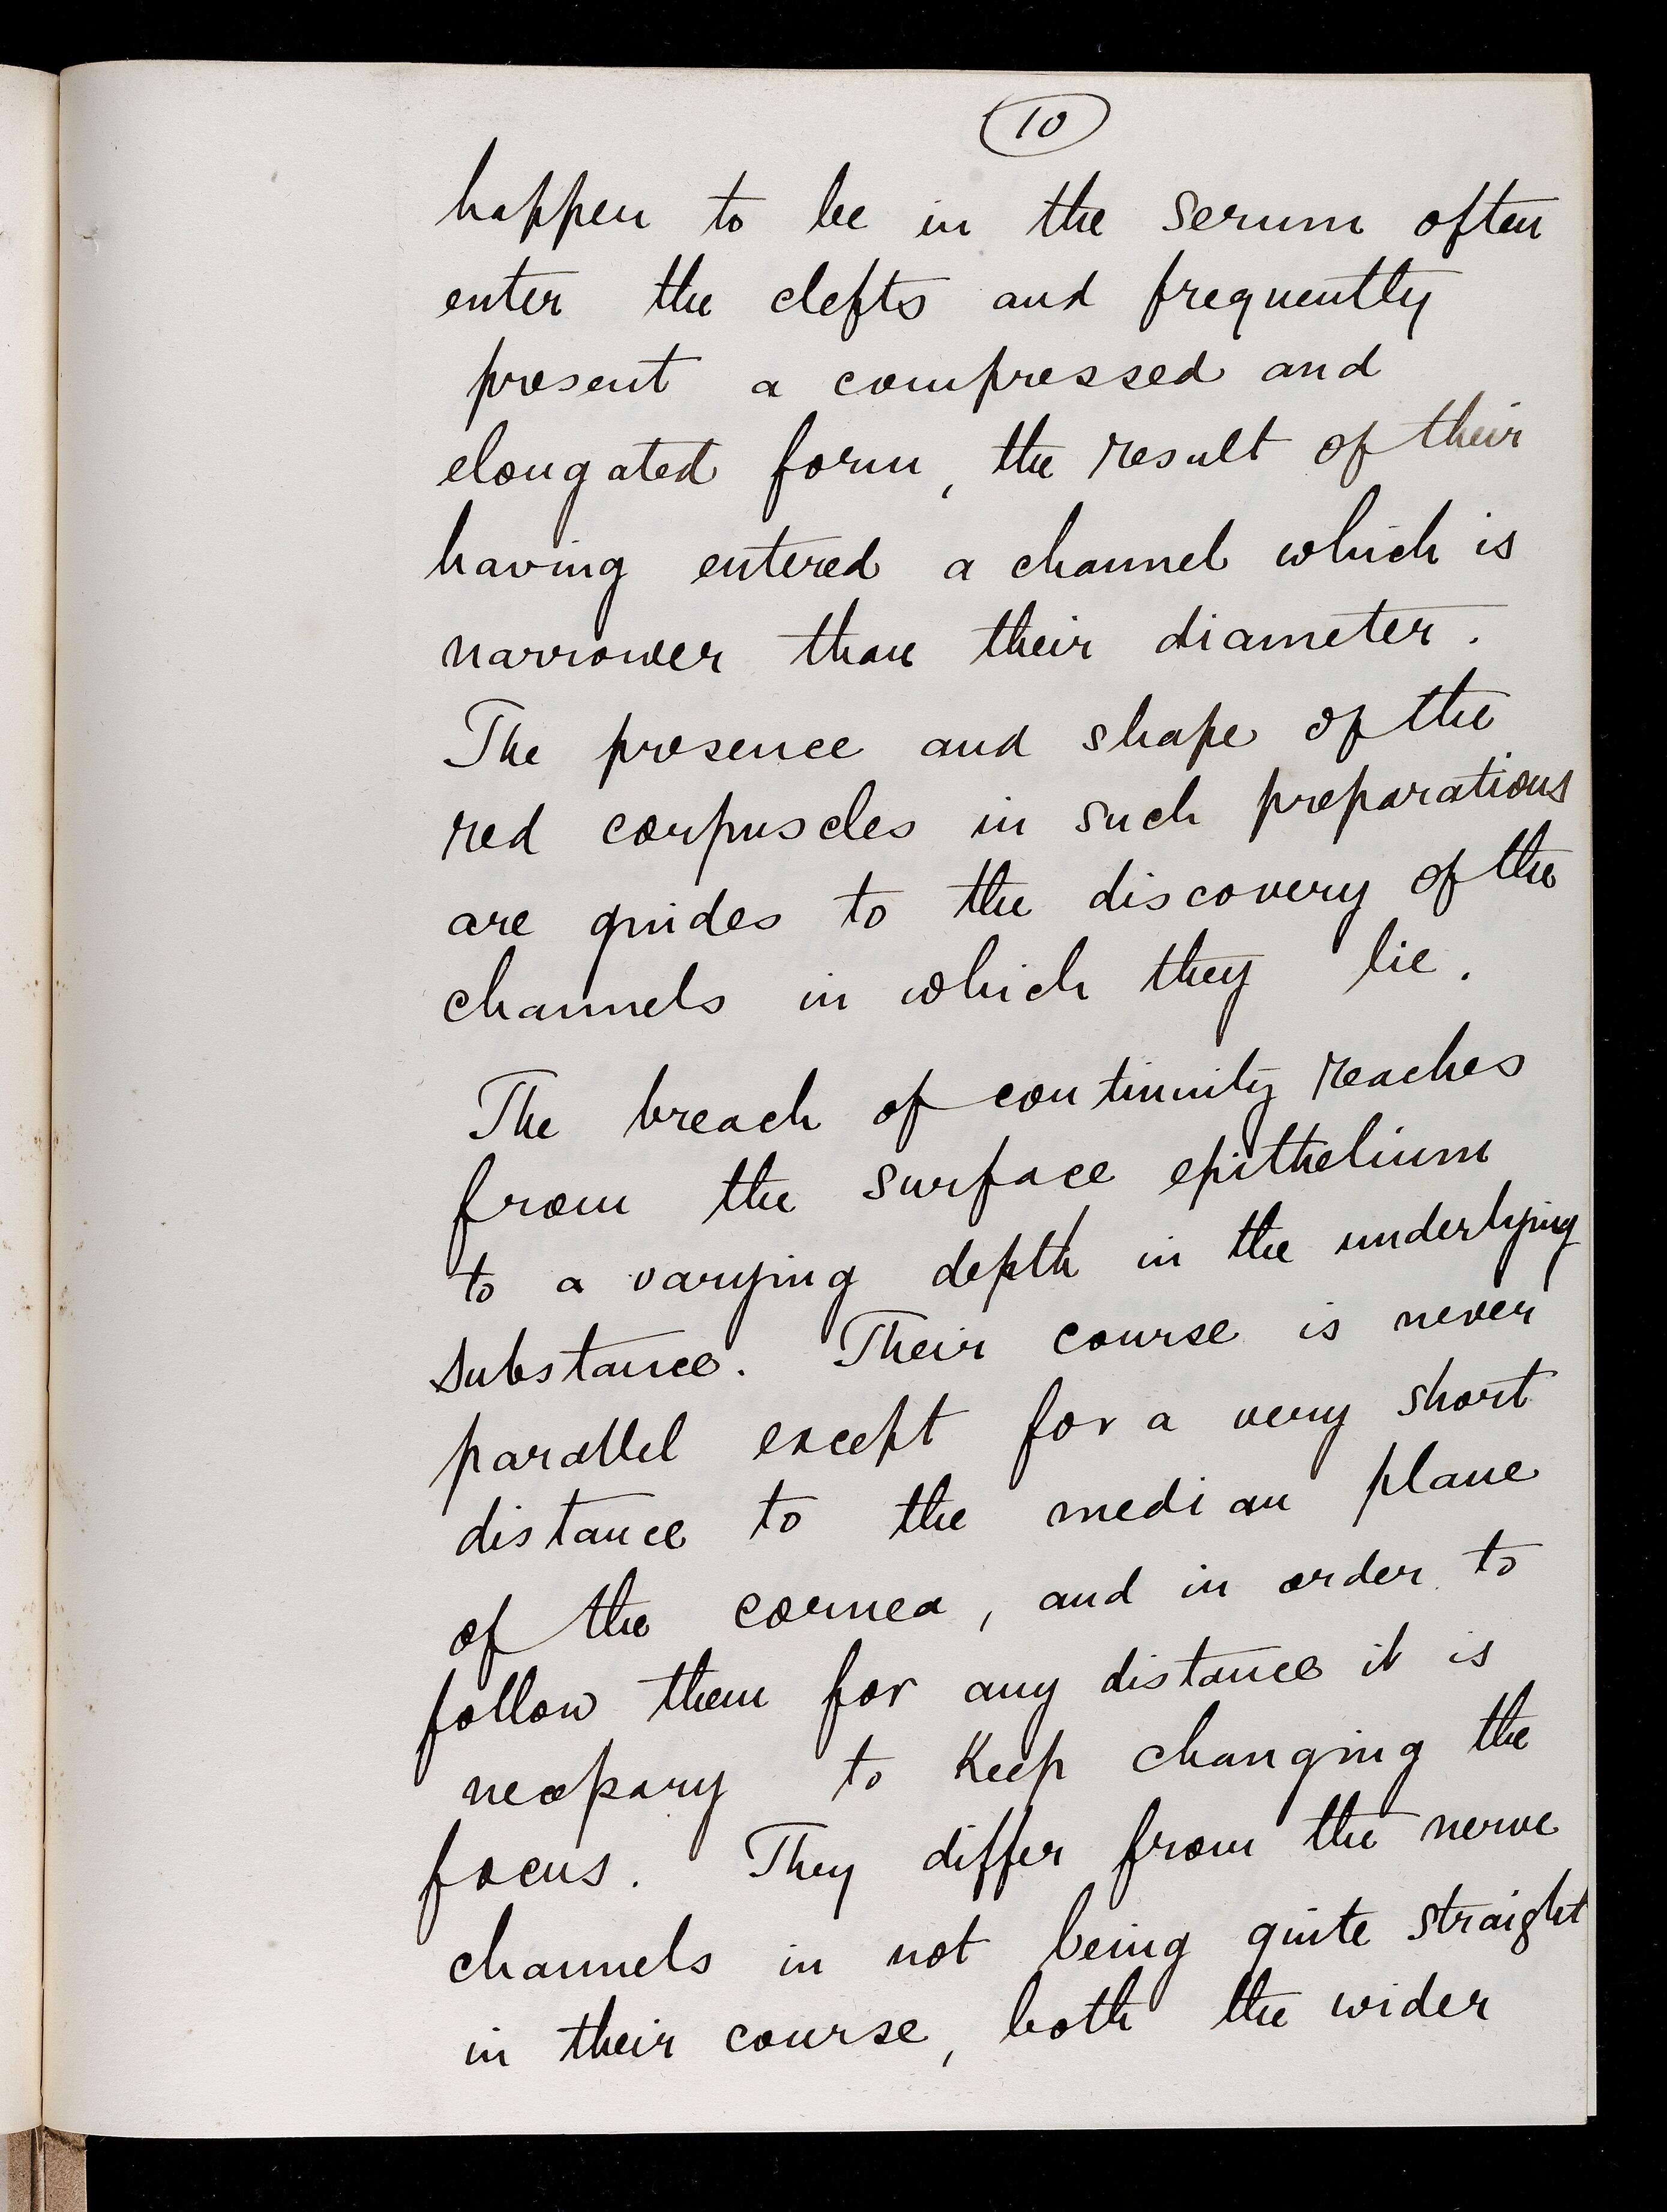 10
happen to be in the serum often
enter the clefts and frequently
present a compressed and
elongated form, the result of their
having entered a channel which is
narrower than their diameter.
The presence and shape of the
red corpuscles in such preparations
are guides to the discovery of the
channels in which they lie.
The breach of continuity reaches
from the surface epithelium
to a varying depth in the underlying
substance. Their course is never
parallel except for a very short
distance to the median plane
of the cornea, and in order to
follow them for any distance it is
necessary to keep changing the
focus. They differ from the nerve
channels in not being quite straight
in their course, both the wider